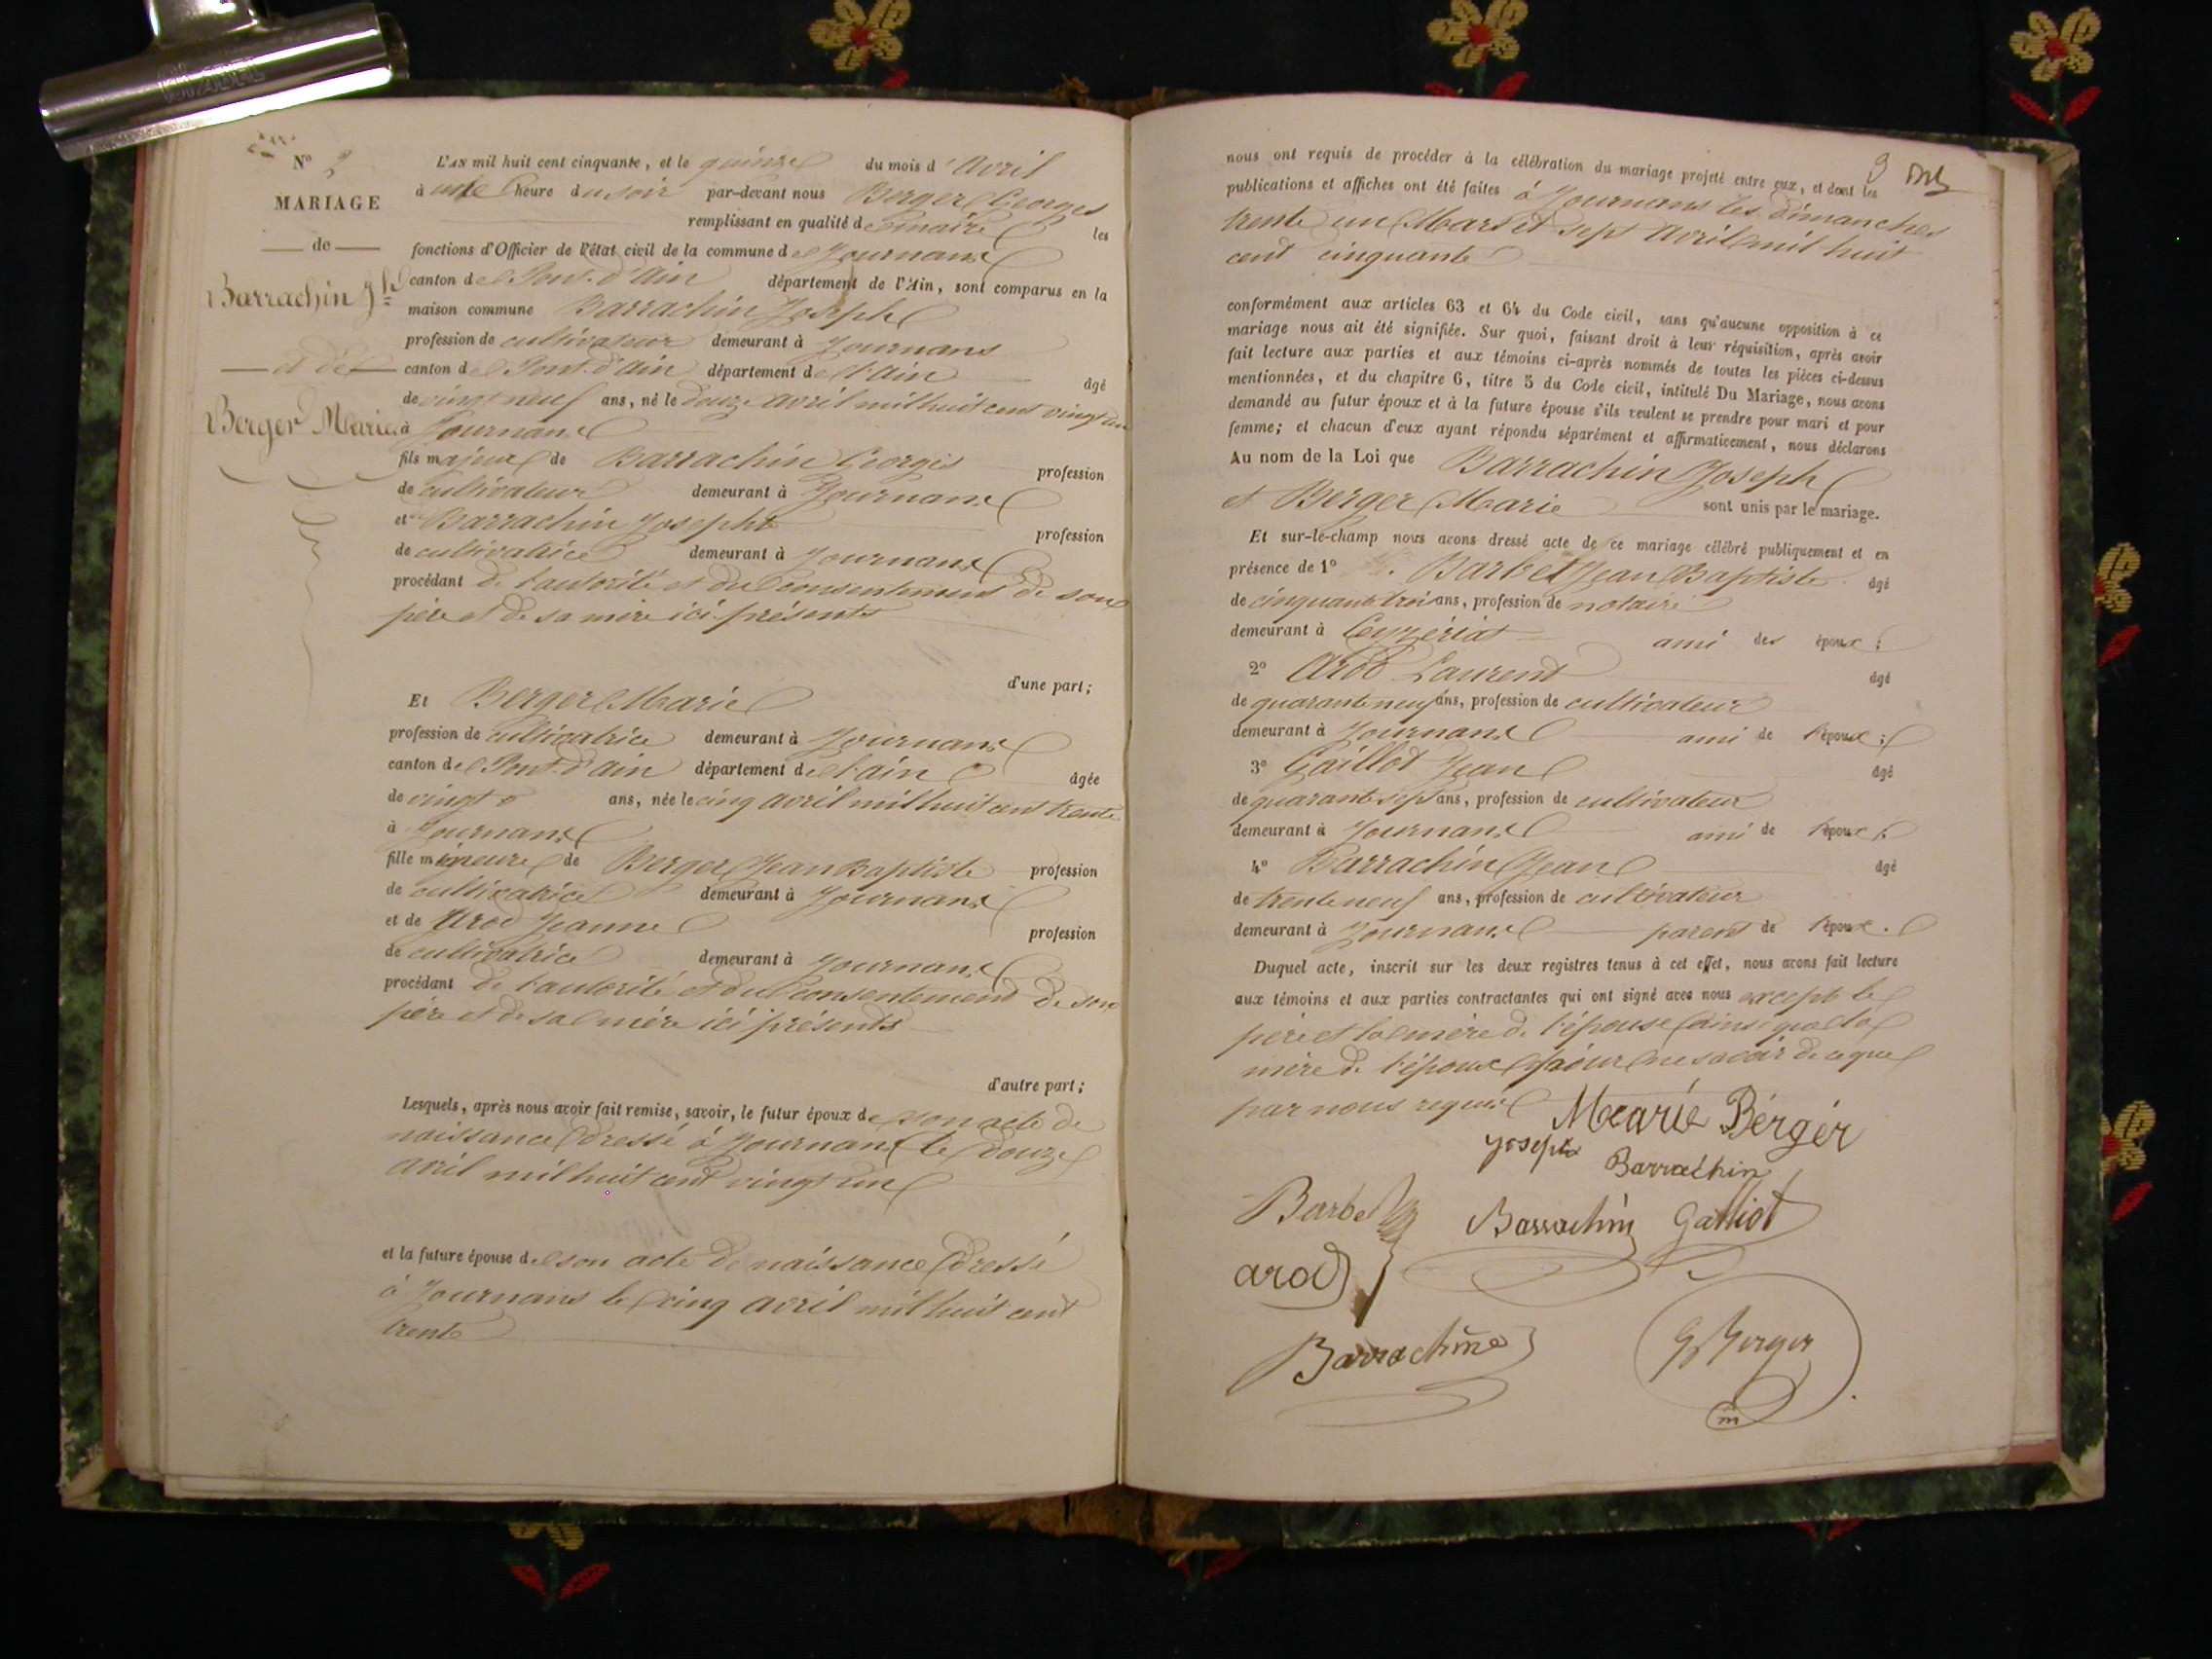 Nº 3
MARIAGE
de
Barrachin Jh
et de
Berger Marie
L'AN mil huit cent cinquante, et le quinze du mois d'Avril
à une heure du soir par-devant nous Berger Georges
remplissant en qualité de maire les
fonctions d'Officier de l'état civil de la commune de Journans
canton de Pont-d'Ain département de l'Ain, sont comparus en la
maison commune Barrachin Joseph
profession de cultivateur demeurant à Journans
canton de Pont-d'Ain département de l'Ain âgé
de vingt neuf ans, né le douze avril mil huit cent vingt un
à Journans
fils majeur de Barrachin Georges profession
de cultivateur demeurant à Journans
et Barrachin Josephte profession
de cultivatrice demeurant à Journans
procédant de l'autorité et du consentement de son
père et de sa mère ici présents
d'une part;
Et Berger Marie
profession de cultivatrice demeurant à Journans
canton de Pont-d'Ain département de l'ain âgée
de vingt ans, née le cinq avril mil huit cent trente
à Journans
fille mineure de Berger Jean Baptiste profession
de cultivatrice demeurant à Journans
et de Arod Jeanne profession
de cultivatrice demeurant à Journans
procédant de l'autorité et du consentement de son
père et de sa mère ici présents
d'autre part;
Lesquels, après nous avoir fait remise, savoir, le futur époux de son acte de
naissance dressé à Journans le douze
avril mil huit cent vingt un
et la future épouse de son acte de naissance dressé
à Journans le cinq avril mil huit cent
trente
9
nous ont requis de procéder à la célébration du mariage projeté entre eux, et dont les
publications et affiches ont été faites à Journans les dimanches
trente un Mars et sept avril mil huit
cent cinquante
conformément aux articles 63 et 64 du Code civil, sans qu'aucune opposition à ce
mariage nous ait été signifiée. Sur quoi, faisant droit à leur réquisition, après avoir
fait lecture aux parties et aux témoins ci-après nommés de toutes les pièces ci-dessus
mentionnées, et du chapitre 6, titre 5 du Code civil, intitulé Du Mariage, nous avons
demandé au futur époux et à la future épouse s'ils veulent se prendre pour mari et pour
femme; et chacun d'eux ayant répondu séparément et affirmativement, nous déclarons
Au nom de la Loi que Barrachin Joseph
et Berger Marie sont unis par le mariage.
Et sur-le-champ nous avons dressé acte de ce mariage célébré publiquement et en
présence de 1º Barbet Jean Baptiste âgé
de cinquante trois ans, profession de notaire
demeurant à Ceyzériat ami des époux;
2º Arod Laurent âgé
de quarante neuf ans, profession de cultivateur
demeurant à Journans ami de l'époux;
3º Gaillot Jean âgé
de quarante sept ans, profession de cultivateur
demeurant à Journans ami de l'époux;
4º Barrachin Jean âgé
de trente neuf ans, profession de cultivateur
demeurant à Journans parent de l'époux.
Duquel acte, inscrit sur les deux registres tenus à cet effet, nous avons fait lecture
aux témoins et aux parties contractantes qui ont signé avec nous excepté le
père et la mère de l'épouse ainsi que la
mère de l'époux pour ne savoir de ce que
par nous requis
Maarie Bérgér
joseph Barrachin
Barbet Barrachin Galliot
arod
Barrachin
G Berger
m